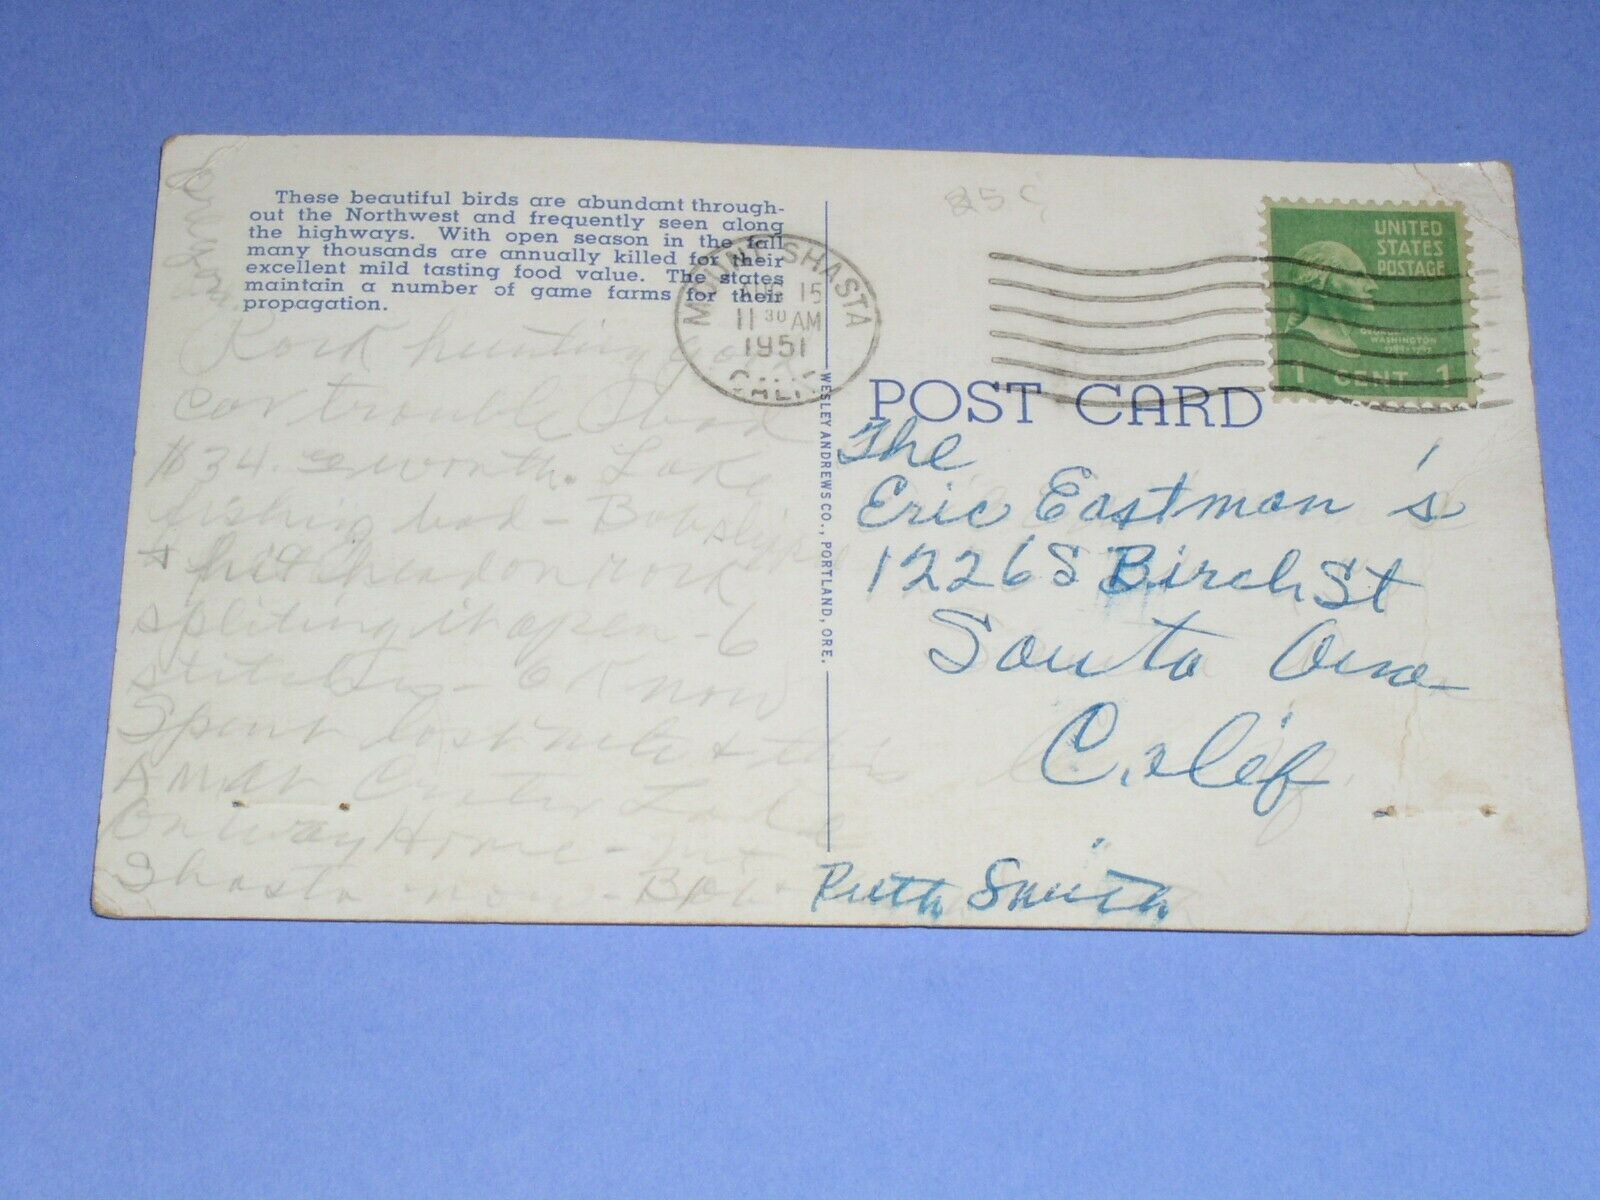 These beautiful birds are abundant through-
out the Northwest and frequently seen along
the highways. With open season in the fall
many thousands are annually killed for their
excellent mild tasting food value. The states
maintain a number of game farms for their
propagation.
MOUNT SHASTA
AUG 15
11 30 AM
1951
CALIF.
UNITED
STATES
POSTAGE
GEORGE
WASHINGTON
1789-1797
1 CENT 1
POST CARD
WESLEY ANDREWS CO., PORTLAND, ORE.
Rock hunting good
car trouble bad
$34. worth. Lake
fishing bad - Bob slipped
& hit head on rock
spliting it open - 6
stitches - OK now
Spent last nite & this
AM at Crater Lake
On way Home - Mt
Shasta now - Bob &
The
Eric Eastman's
1226 S Birch St
Santa Ana
Calif
Ruth Smith